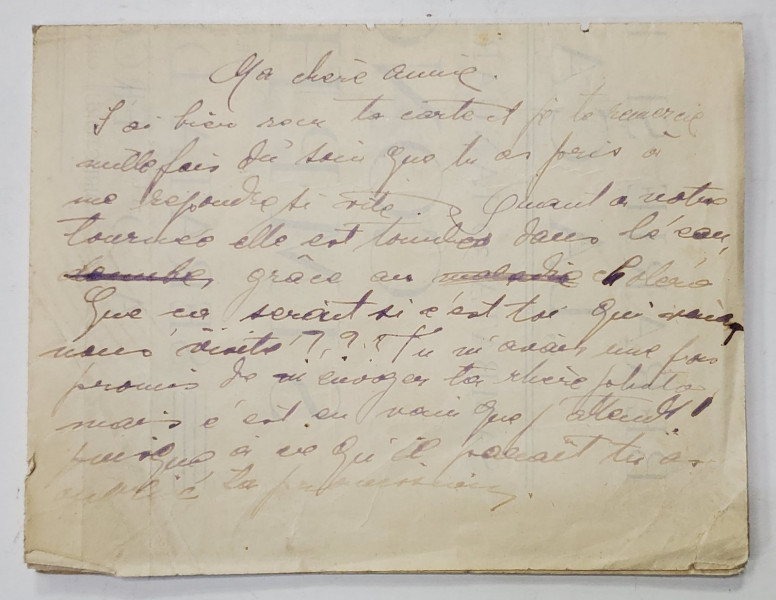 Ma chère amie.
J'ai bien reçu ta carte et je te remercie
mille fois du soin que tu as pris à
me répondre si vite. Quant a notre
tournée elle est tombée dans l'eau,
grâce au choléra
Que ca serait si c'est toi qui
nous visite?,?? Tu m'avais une fois
promis de m'envoyer ta chère photo
mais c'est en vain que j'attends!
puisque à ce qu'il parait tu as
oublié ta promission.